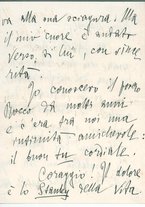 va alla sua sciagura. Ma
il mio cuore è andato
verso di lui, con since
rità.
Io, conoscevo il povero
Rocco da molti anni
e c'era tra noi una
intimità amichevole:
il buon tu cordiale.
Coraggio! Il dolore
è lo della vita.